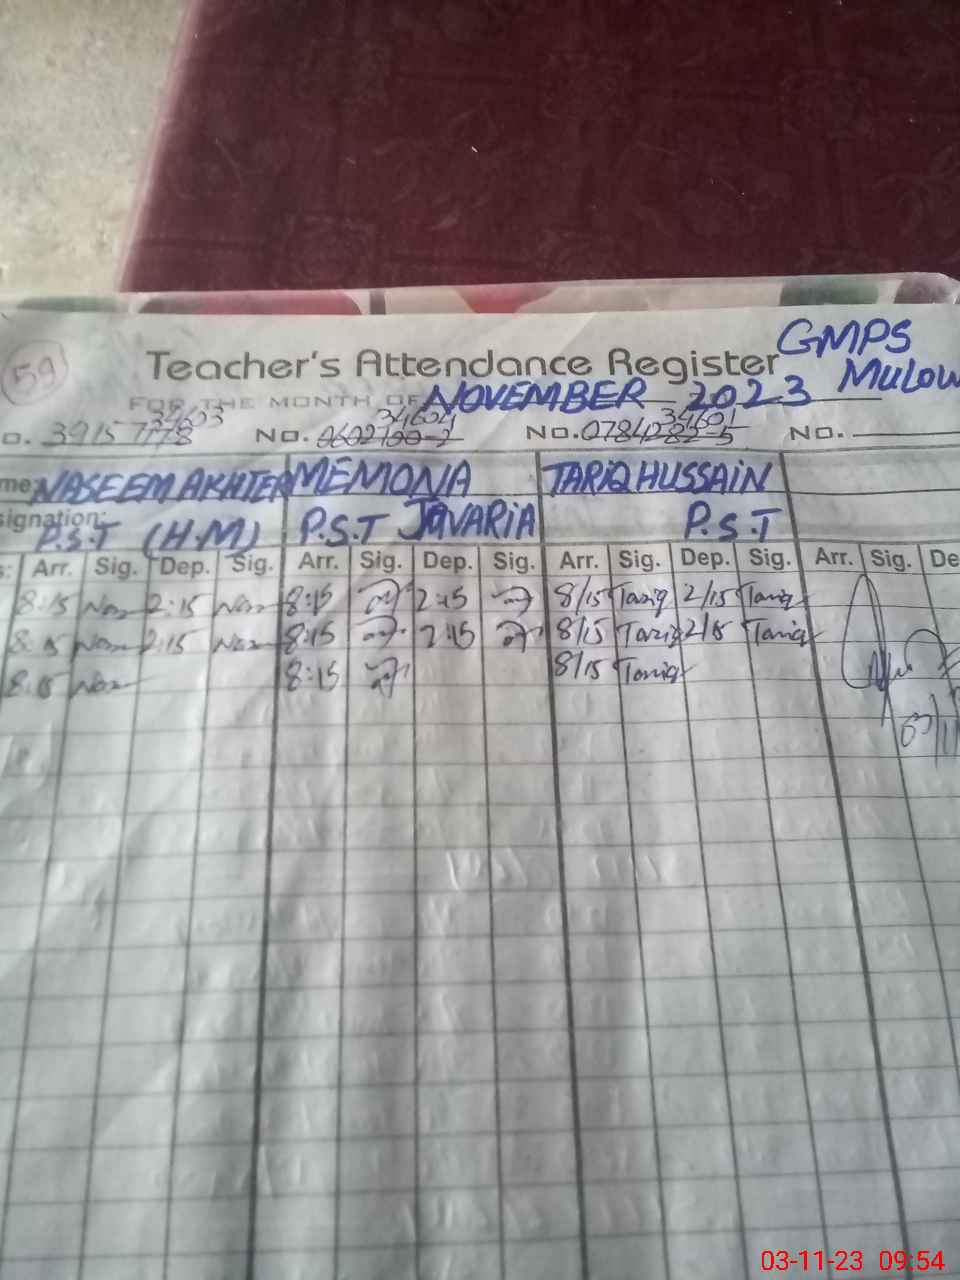 GMPS
59 Teacher's Attendance Register Mulow
FOR THE MONTH OF NOVEMBER 2023
34603 34604 34601
o. 39157778 No. 0602100-2 No. 0784282-5 No.
me: NASEEM AKHTER MEMONA TARIQ HUSSAIN
signation: P.S.T (H.M) P.S.T JAVARIA P.S.T
s: Arr. Sig. Dep. Sig. Arr. Sig. Dep. Sig. Arr. Sig. Dep. Sig. Arr. Sig. De
8:15 2:15 8:15 2:45 8/15 Tariq 2/15 Tariq
8:15 2:15 8:15 2:45 8/15 Tariq 2/15 Tariq
8:15 8:15 8/15 Tariq
03/11
03-11-23 09:54